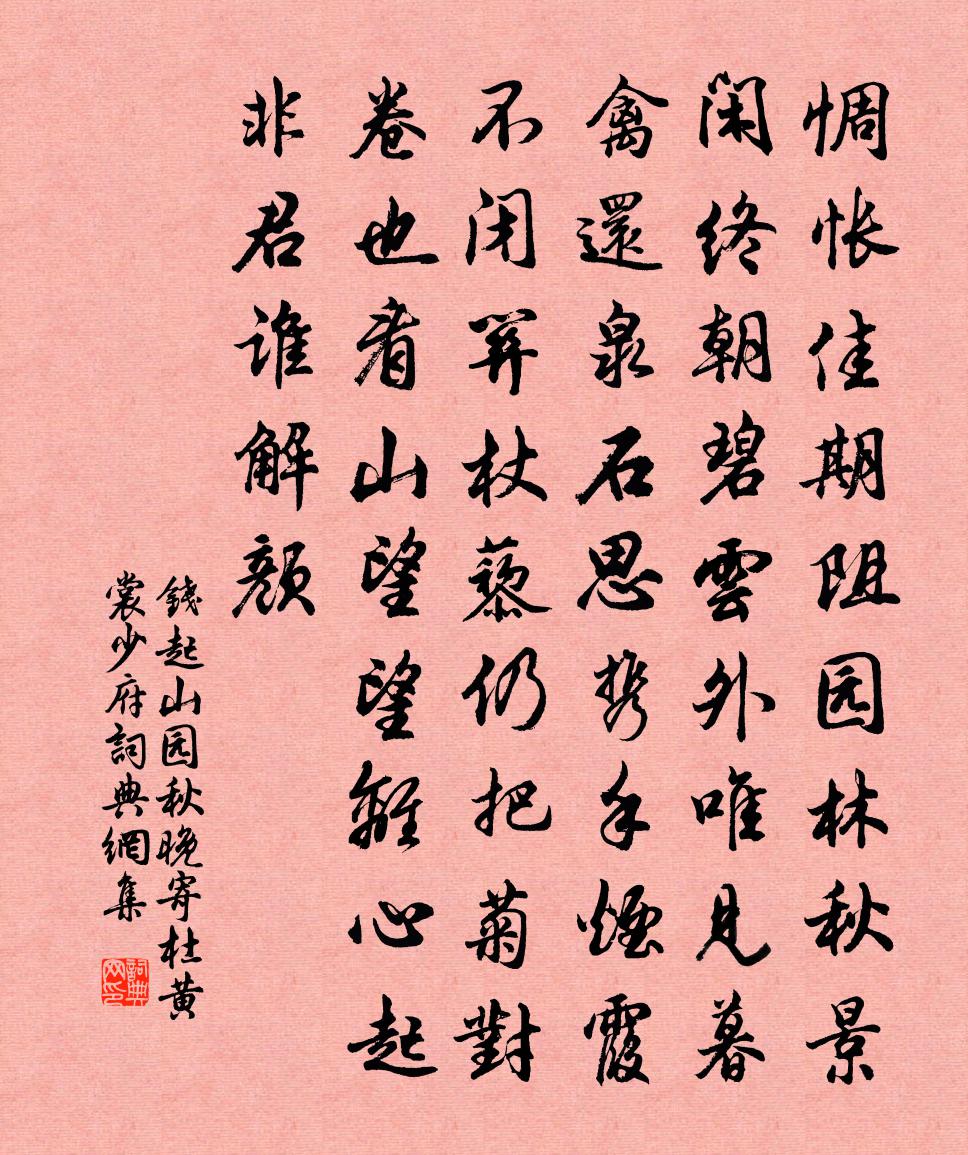 惆怅佳期阻园林秋景
闲终朝碧雲外唯見暮
禽還泉石思携手煙霞
不闭関杖藜仍把菊對
卷也看山望望離心起
非君谁解颜
錢起山园秋晚寄杜黄
裳少府詞典網集
詞典网印